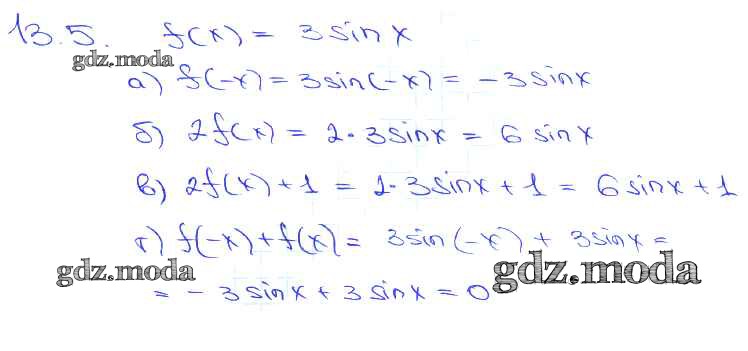 13.5. f(x) = 3 sin x
gdz.moda
а) f(-x) = 3sin(-x) = -3sinx
б) 2f(x) = 2·3sinx = 6 sinx
в) 2f(x)+1 = 2·3sinx+1 = 6sinx+1
г) f(-x)+f(x) = 3sin(-x) + 3sinx =
gdz.moda gdz.moda
= -3sinx+3sinx=0